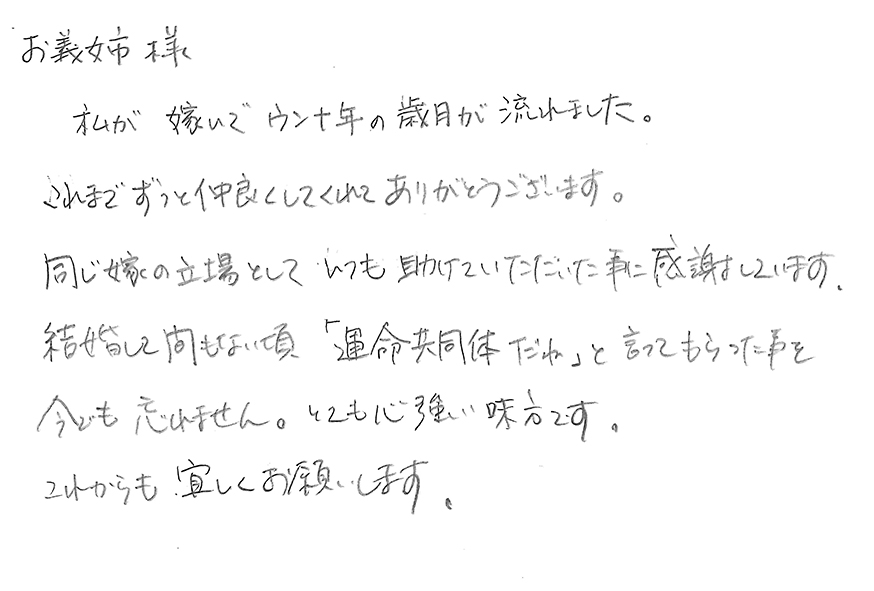 お義姉様
私が嫁いでウン十年の歳月が流れました。
これまでずっと仲良くしてくれてありがとうございます。
同じ嫁の立場としていつも助けていただいた事に感謝しています。
結婚して間もない頃「運命共同体だね」と言ってもらった事を
今でも忘れません。とても心強い味方です。
これからも宜しくお願いします。